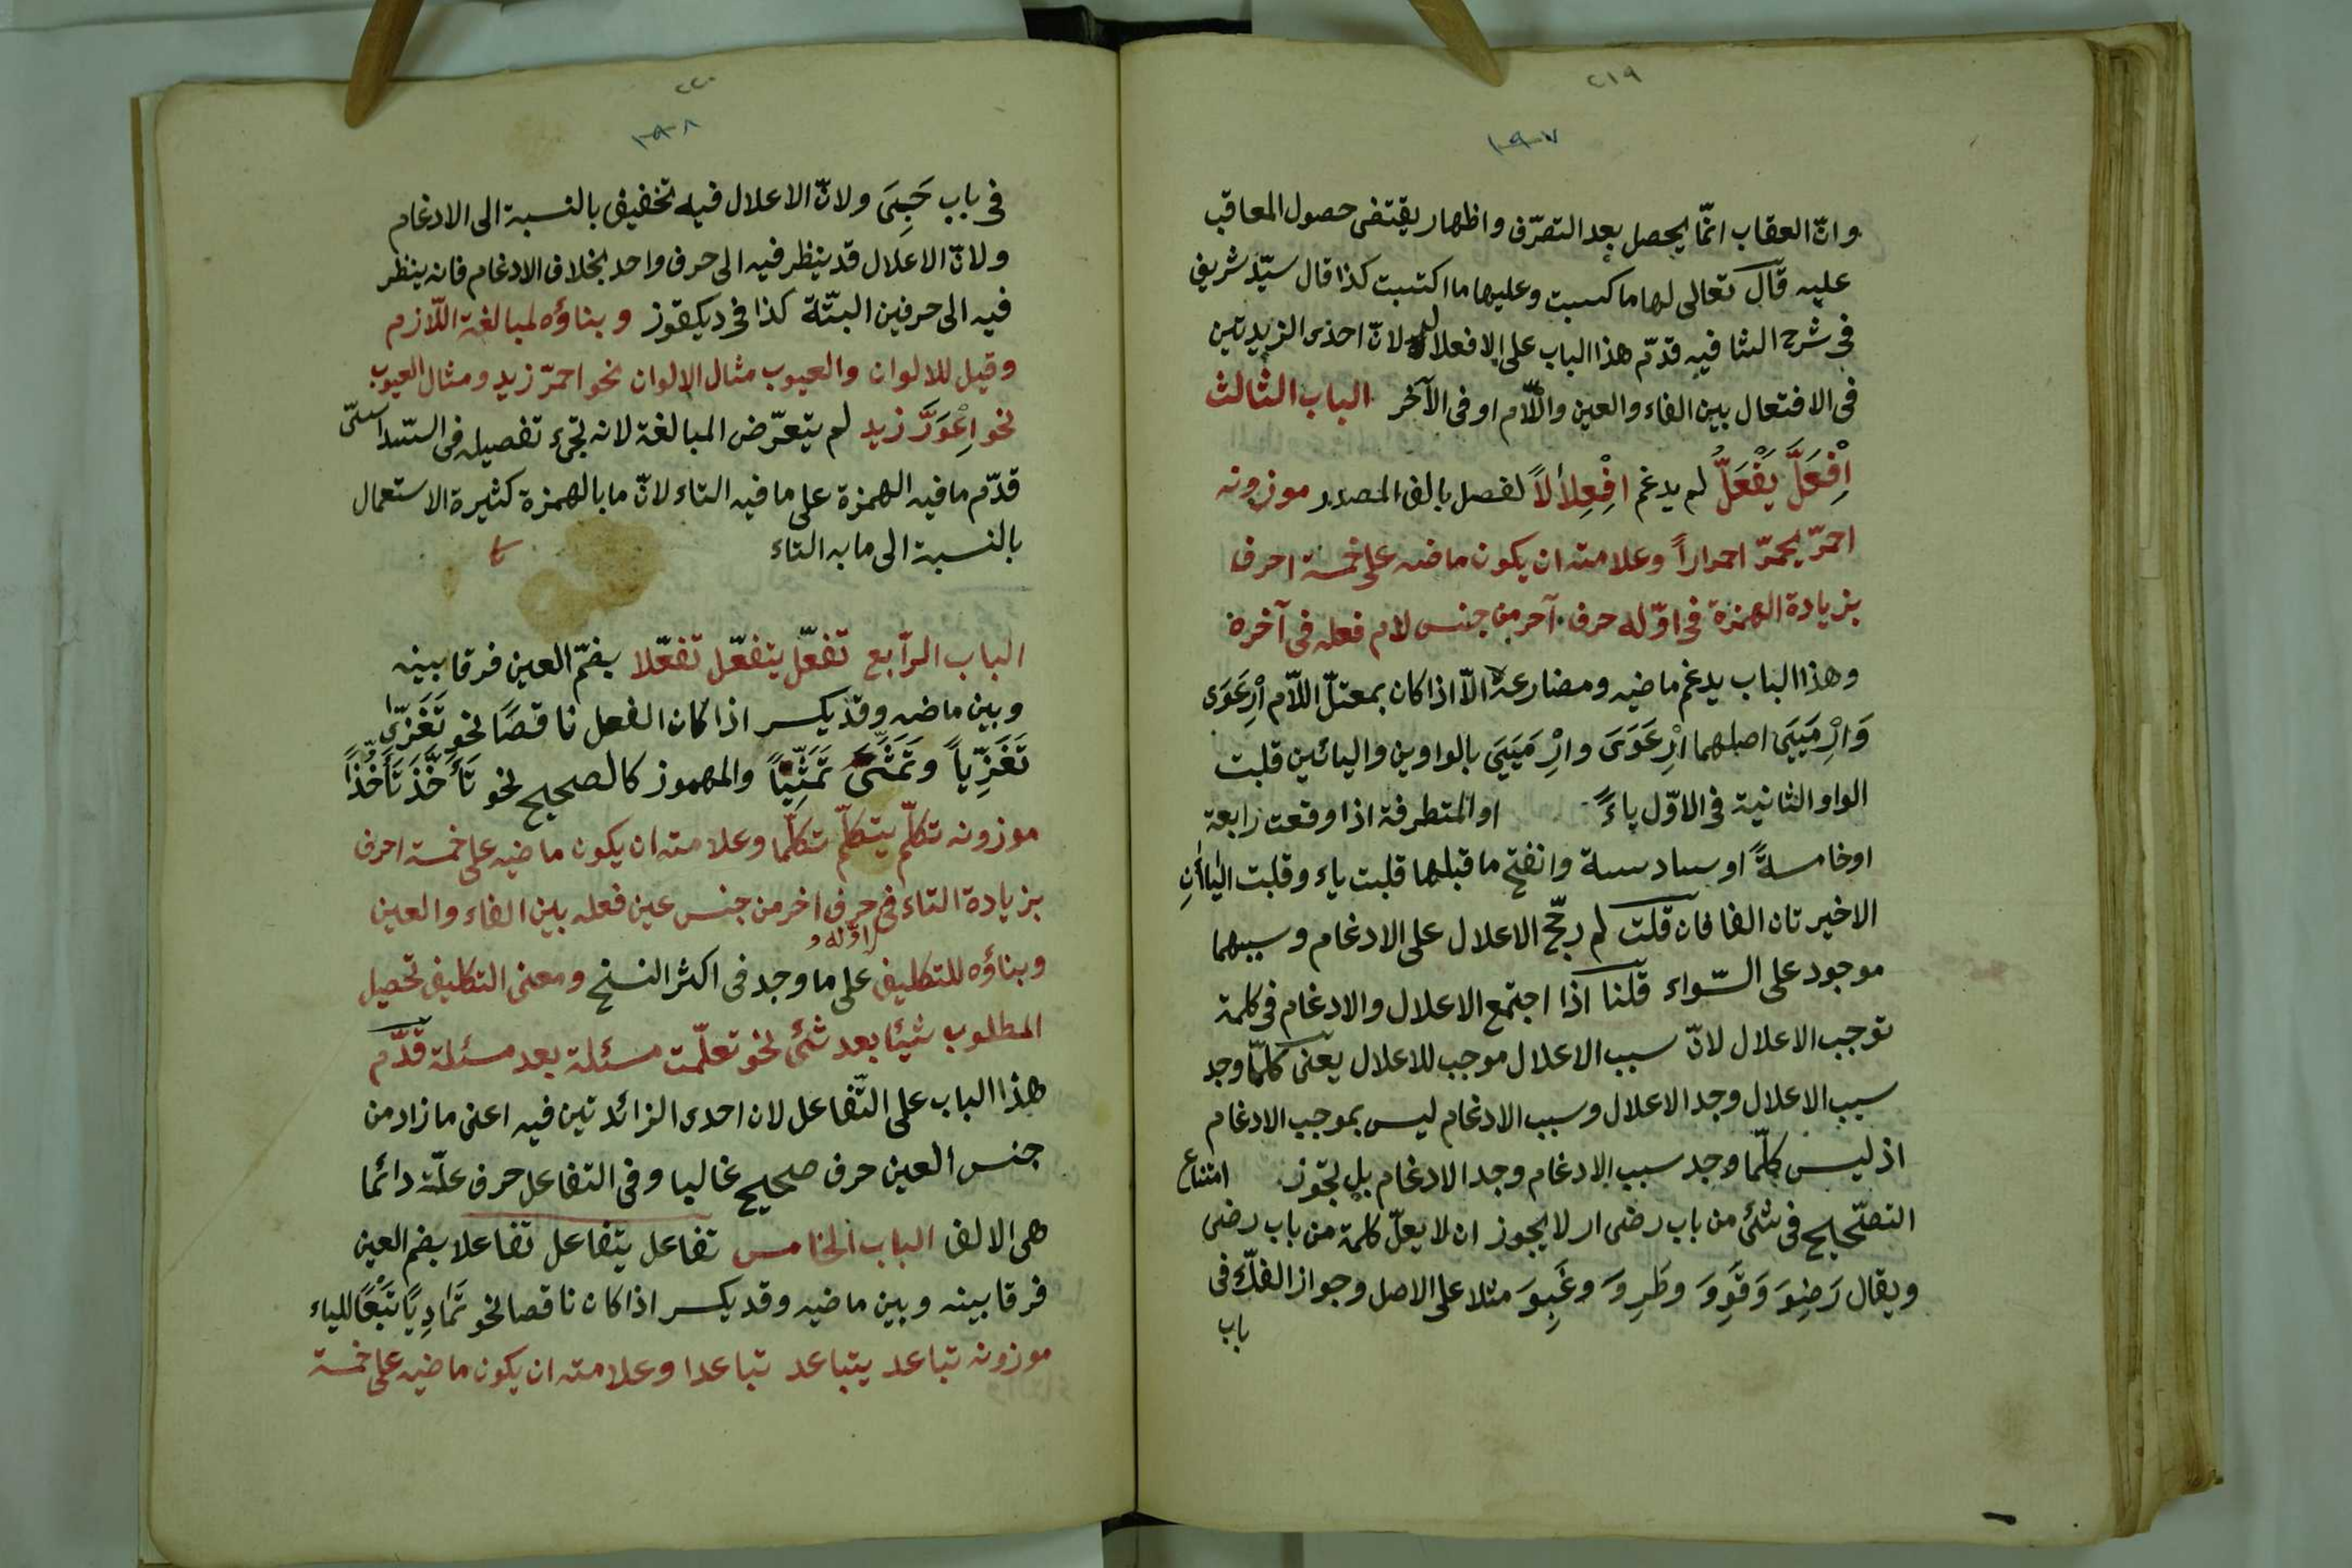 ٢١٩
١٩٧
وانّ العقاب انّما يحصل بعد التصرّف واظهار يقتضى حصول المعاقب
عليه قال تعالى لها ما كسبت وعليها ما اكتسبت كذا قال سيّد شريف
فى شرح الشافيه قدّم هذا الباب على الافعلال لانّ احدى الزيدتين
فى الافتعال بين الفاء والعين واللّام او فى الآخر الباب الثالث
اِفْعَلَّ يَفْعَلُّ لم يدغم افْعِلالاً لفصل بالف المصدر موزونه
احمرّ يحمرّ احمراراً وعلامته ان يكون ماضيه على خمسة احرف
بزيادة الهمزة فى اوّله حرف آخر من جنس لام فعله فى آخره
وهذا الباب يدغم ماضيه ومضارعه الّا اذا كان بمعتلّ اللّام اِرْعَوَى
وَاِرْمَيَيَ اصلهما اِرْعَوَوَ وارْمَيَيَ بالواوين واليائين قلبت
الواو الثانية فى الاوّل ياءً او المتطرفة اذا وقعت رابعة
او خامسةً او سادسة وانفتح ما قبلها قلبت ياء وقلبت الياأنِ
الاخيرتان الفا فان قلت لم رجّح الاعلال على الادغام وسببهما
موجود على السّواء قلنا اذا اجتمع الاعلال والادغام فى كلمة
توجب الاعلال لانّ سبب الاعلال موجب للاعلال يعنى كلّما وجد
سبب الاعلال وجد الاعلال وسبب الادغام ليس بموجب الادغام
اذ ليس كلّما وجد سبب الادغام وجد الادغام بل تجوز امتناع
التصّحيح فى شئ من باب رضى ار لا يجوز ان لا يعلّ كلمة من باب رضى
ويقال رَضِوَ وَقَوِوَ وطَرِوَ وغَبِوَ مثلا على الاصل وجواز الفكّ فى
باب
٢٢٠
١٩٨
فى باب حَيِىَ ولانّ الاعلال فيه تخفيف بالنسبة الى الادغام
ولانّ الاعلال قد ينظر فيه الى حرف واحد بخلاف الادغام فانه ينظر
فيه الى حرفين البتّة كذا فى ديكقوز وبناؤه لمبالغة اللّازم
وقيل للالوان والعيوب مثال الالوان نحو احمرّ زيد ومثال العيوب
نحو اِعْوَرَّ زيد لم يتعرّض المبالغة لانه تجىء تفصيله فى السّداسىّ
قدّم ما فيه الهمزة على ما فيه التاء لانّ ما بالهمزة كثيرة الاستعمال
بالنسبة الى ما به التاء
الباب الرّابع تفعّل يتفعّل تفعّلا بضمّ العين فرقا بينه
وبين ماضيه وقد يكسر اذا كان الفعل ناقصًا نحو تَغَزّى
تَغَزِّياً وتَمَنَّىَ تَمَنِّيًا والمهموز كالصحيح نحو تَأَخَّذَ تَأَخُّذًا
موزونه تكلّم يتكلّم تكلّما وعلامته ان يكون ماضيه على خمسة احرف
بزيادة التاء فى حرف اخر من جنس عين فعله بين الفاء والعين
اوّله و
وبناؤه للتكليف على ما وجد فى اكثر النسخ ومعنى التكليف تحصيل
المطلوب شيئا بعد شئ نحو تعلّمت مسئلة بعد مسئلة قدّم
هذا الباب على التّفاعل لان احدى الزائدتين فيه اعنى ما زاد من
جنس العين حرف صحيح غالبا وفى التفاعل حرف علّة دائما
هى الالف الباب الخامس تفاعل يتفاعل تفاعلا بضم العين
فرقا بينه وبين ماضيه وقد يكسر اذا كان ناقصا نحو تَمَادِيًا تَبَعًا للياء
موزونه تباعد يتباعد تباعدا وعلامته ان يكون ماضيه على خمسة